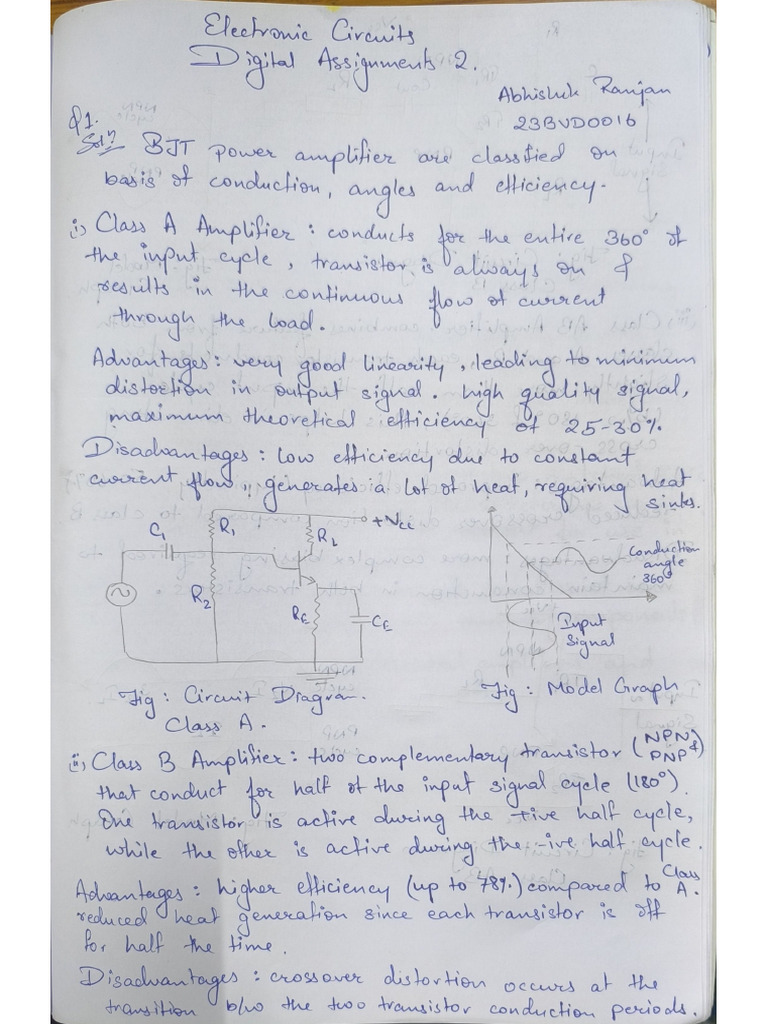 Electronic Circuits
Digital Assignments 2.
Abhishek Ranjan
23BVD0016
Q1.
Solⁿ: BJT power amplifier are classified on
basis of conduction, angles and efficiency.
i) Class A Amplifier : conducts for the entire 360° of
the input cycle, transistor is always on &
results in the continuous flow of current
through the load.
Advantages : very good linearity, leading to minimum
distortion in output signal. high quality signal,
maximum theoretical efficiency of 25-30%.
Disadvantages : low efficiency due to constant
current flow, generates a lot of heat, requiring heat
sinks.
C1 R1 RL +Vcc
R2 RE CE
Conduction
angle
360°
Input
Signal
Fig : Circuit Diagram.
Class A.
Fig : Model Graph
ii) Class B Amplifier : two complementary transistor (NPN &
PNP)
that conduct for half of the input signal cycle (180°).
One transistor is active during the +ive half cycle,
while the other is active during the -ive half cycle.
Advantages : higher efficiency (up to 78%) compared to Class
A.
reduced heat generation since each transistor is off
for half the time.
Disadvantages : crossover distortion occurs at the
transition b/w the two transistor conduction periods.